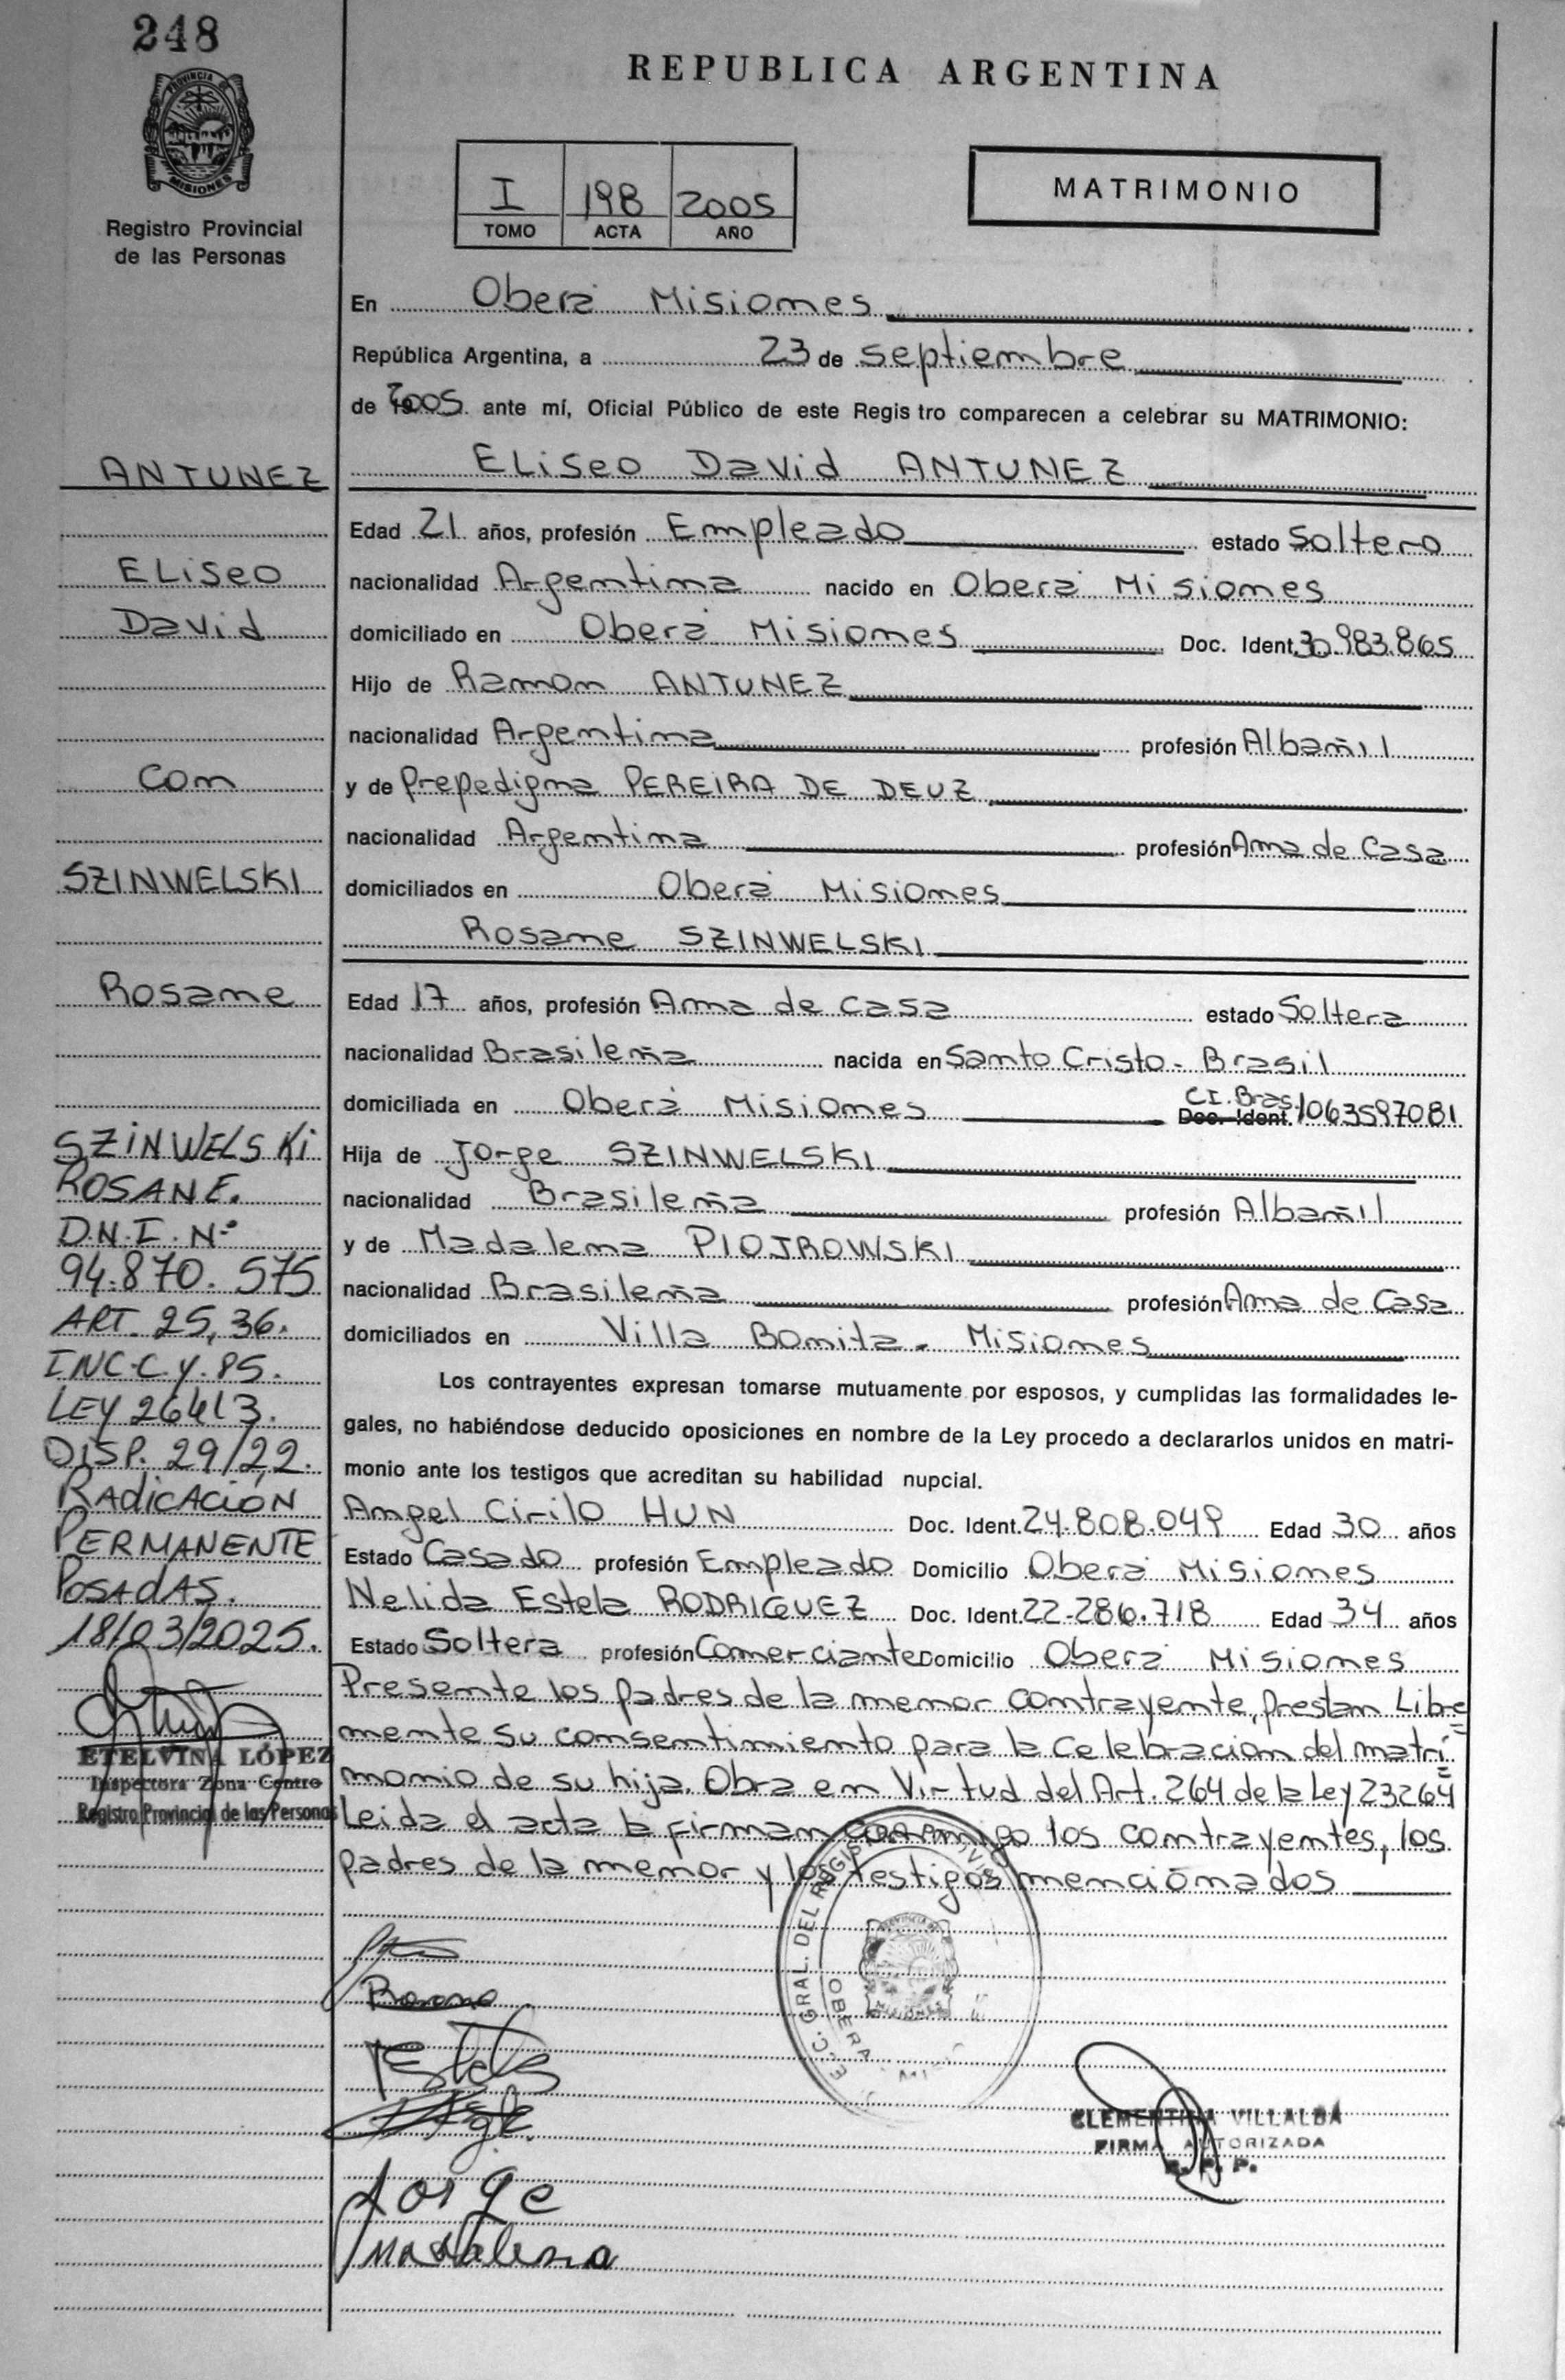 248
PROVINCIA
MISIONES
Registro Provincial
de las Personas
REPUBLICA ARGENTINA
I 198 2005
TOMO ACTA AÑO
MATRIMONIO
En Oberá Misiones
República Argentina, a 23 de septiembre
de 2005 ante mí, Oficial Público de este Registro comparecen a celebrar su MATRIMONIO:
Eliseo David ANTUNEZ
Edad 21 años, profesión Empleado estado Soltero
nacionalidad Argentina nacido en Oberá Misiones
domiciliado en Oberá Misiones Doc. Ident. 30.983.865
Hijo de Ramon ANTUNEZ
nacionalidad Argentina profesión Albañil
y de Prepedigna PEREIRA DE DEUZ
nacionalidad Argentina profesión Ama de Casa
domiciliados en Oberá Misiones
Rosane SZINWELSKI
Edad 17 años, profesión Ama de casa estado Soltera
nacionalidad Brasileña nacida en Santo Cristo - Brasil
domiciliada en Oberá Misiones C.I. Bras. Doc. Ident. 1063597081
Hija de Jorge SZINWELSKI
nacionalidad Brasileña profesión Albañil
y de Madalena PIOTROWSKI
nacionalidad Brasileña profesión Ama de Casa
domiciliados en Villa Bonita. Misiones
Los contrayentes expresan tomarse mutuamente por esposos, y cumplidas las formalidades le-
gales, no habiéndose deducido oposiciones en nombre de la Ley procedo a declararlos unidos en matri-
monio ante los testigos que acreditan su habilidad nupcial.
Angel Cirilo HUN Doc. Ident. 24.808.049 Edad 30 años
Estado Casado profesión Empleado Domicilio Oberá Misiones
Nelida Estela RODRIGUEZ Doc. Ident. 22.286.718 Edad 34 años
Estado Soltera profesión Comerciante Domicilio Oberá Misiones
Presente los padres de la menor contrayente, prestan Libre
mente su consentimiento para la celebracion del matri
monio de su hija. Obra en Virtud del Art. 264 de la Ley 23264
Leida el acta la firman conmigo los contrayentes, los
padres de la menor y los testigos mencionados
ANTUNEZ
Eliseo
David
Con
SZINWELSKI
Rosane
SZINWELSKI
ROSANE.
D.N.I. Nº
94.870.575
ART. 25, 36.
INC-C.Y.85.
LEY 26413.
DISP. 29/22.
RAdicACIÓN
PERMANENTE
POSADAS.
18/03/2025.
ETELVINA LÓPEZ
Inspectora Zona Centro
Registro Provincial de las Personas
GRAL. DEL REGISTRO
OBERA
Rosane
Estela
Jorge
Madalena
CLEMENTINA VILLALBA
FIRMA AUTORIZADA
R. P. P.